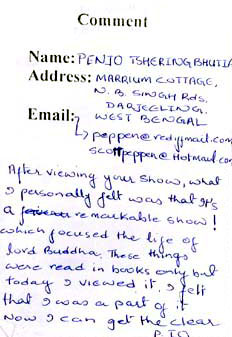 Comment
Name: PENJO TSHERING BHUTIA
Address: MARRIUM COTTAGE,
N. B. SINGH Rds,
DARJEELING.
Email: WEST BENGAL
peppen@rediffmail.com
scottpeppen@Hotmail.com
After viewing your show, what
I personally felt was that It's
a remarkable show!
which focused the life of
lord Buddha. These things
were read in books only but
today I viewed it. I felt
that I was a part of it
Now I can get the clear
P.T.O